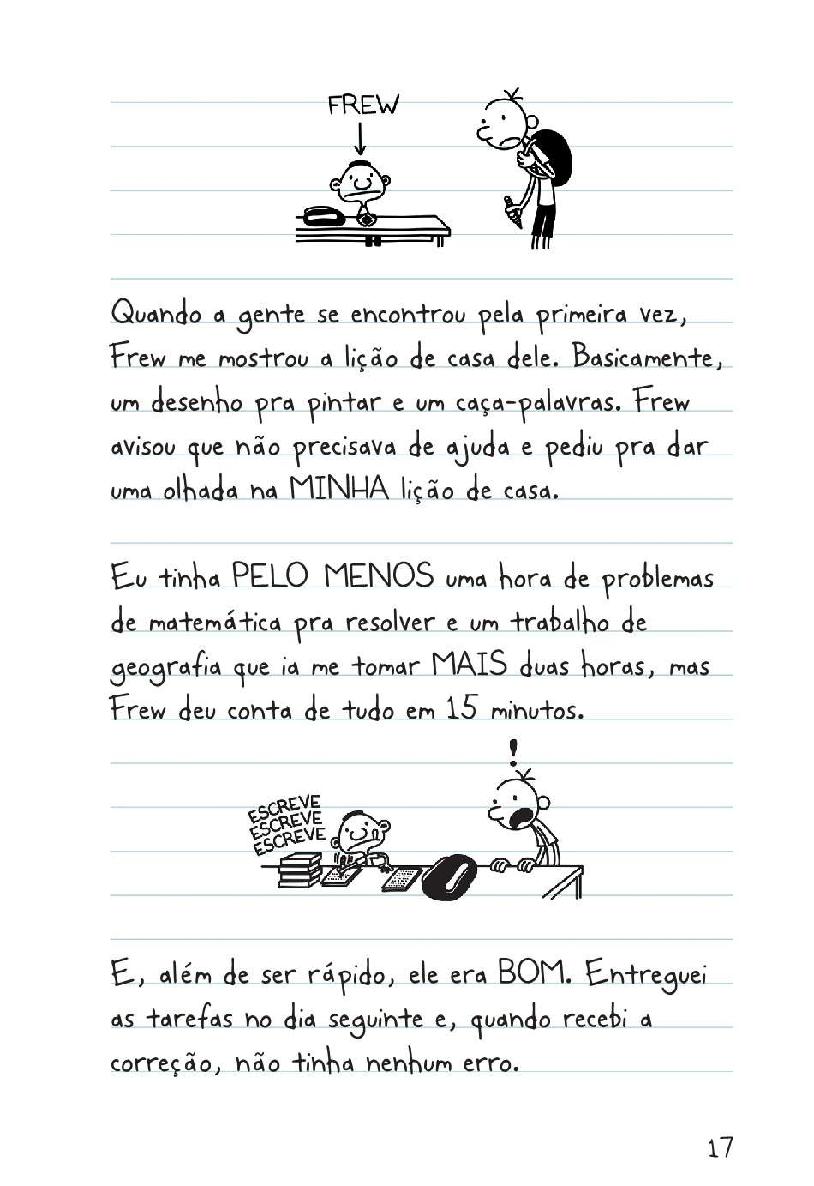 FREW
Quando a gente se encontrou pela primeira vez,
Frew me mostrou a lição de casa dele. Basicamente,
um desenho pra pintar e um caça-palavras. Frew
avisou que não precisava de ajuda e pediu pra dar
uma olhada na MINHA lição de casa.
Eu tinha PELO MENOS uma hora de problemas
de matemática pra resolver e um trabalho de
geografia que ia me tomar MAIS duas horas, mas
Frew deu conta de tudo em 15 minutos.
!
ESCREVE
ESCREVE
ESCREVE
E, além de ser rápido, ele era BOM. Entreguei
as tarefas no dia seguinte e, quando recebi a
correção, não tinha nenhum erro.
17